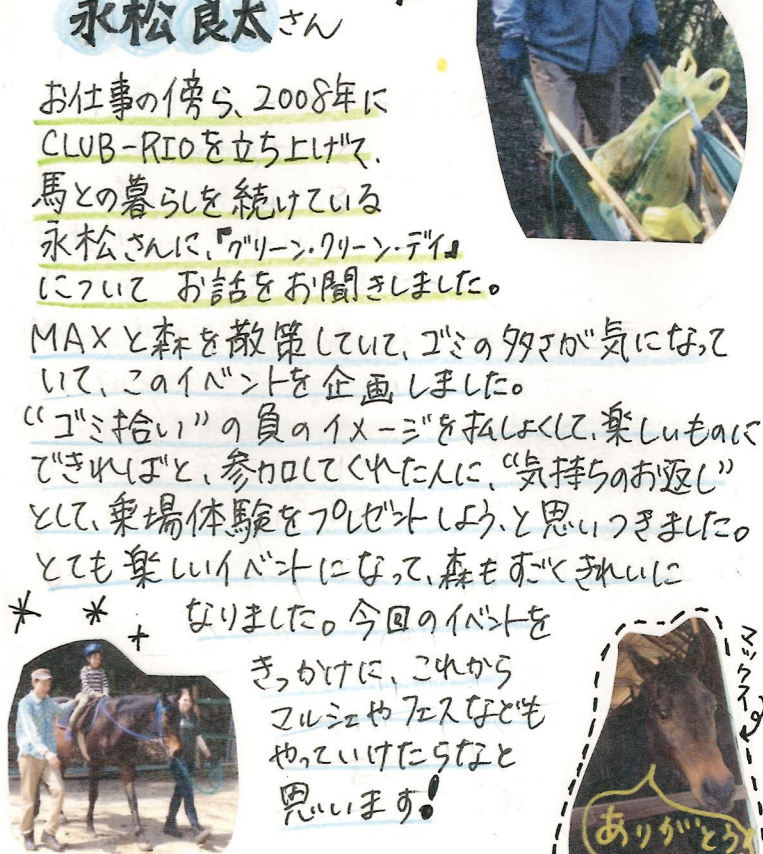 永松 良太さん
お仕事の傍ら、2008年に
CLUB-RIOを立ち上げて、
馬との暮らしを続けている
永松さんに、『グリーン・クリーン・デイ』
について お話をお聞きしました。
MAXと森を散策していて、ゴミの多さが気になって
いて、このイベントを企画しました。
“ゴミ拾い”の負のイメージを払しょくして、楽しいものに
できればと、参加してくれた人に、“気持ちのお返し”
として、乗場体験をプレゼントしよう、と思いつきました。
とても楽しいイベントになって、森もすごくきれいに
なりました。今回のイベントを
きっかけに、これから
マルシェやフェスなども
やっていけたらなと
思います!
マックス
ありがとう